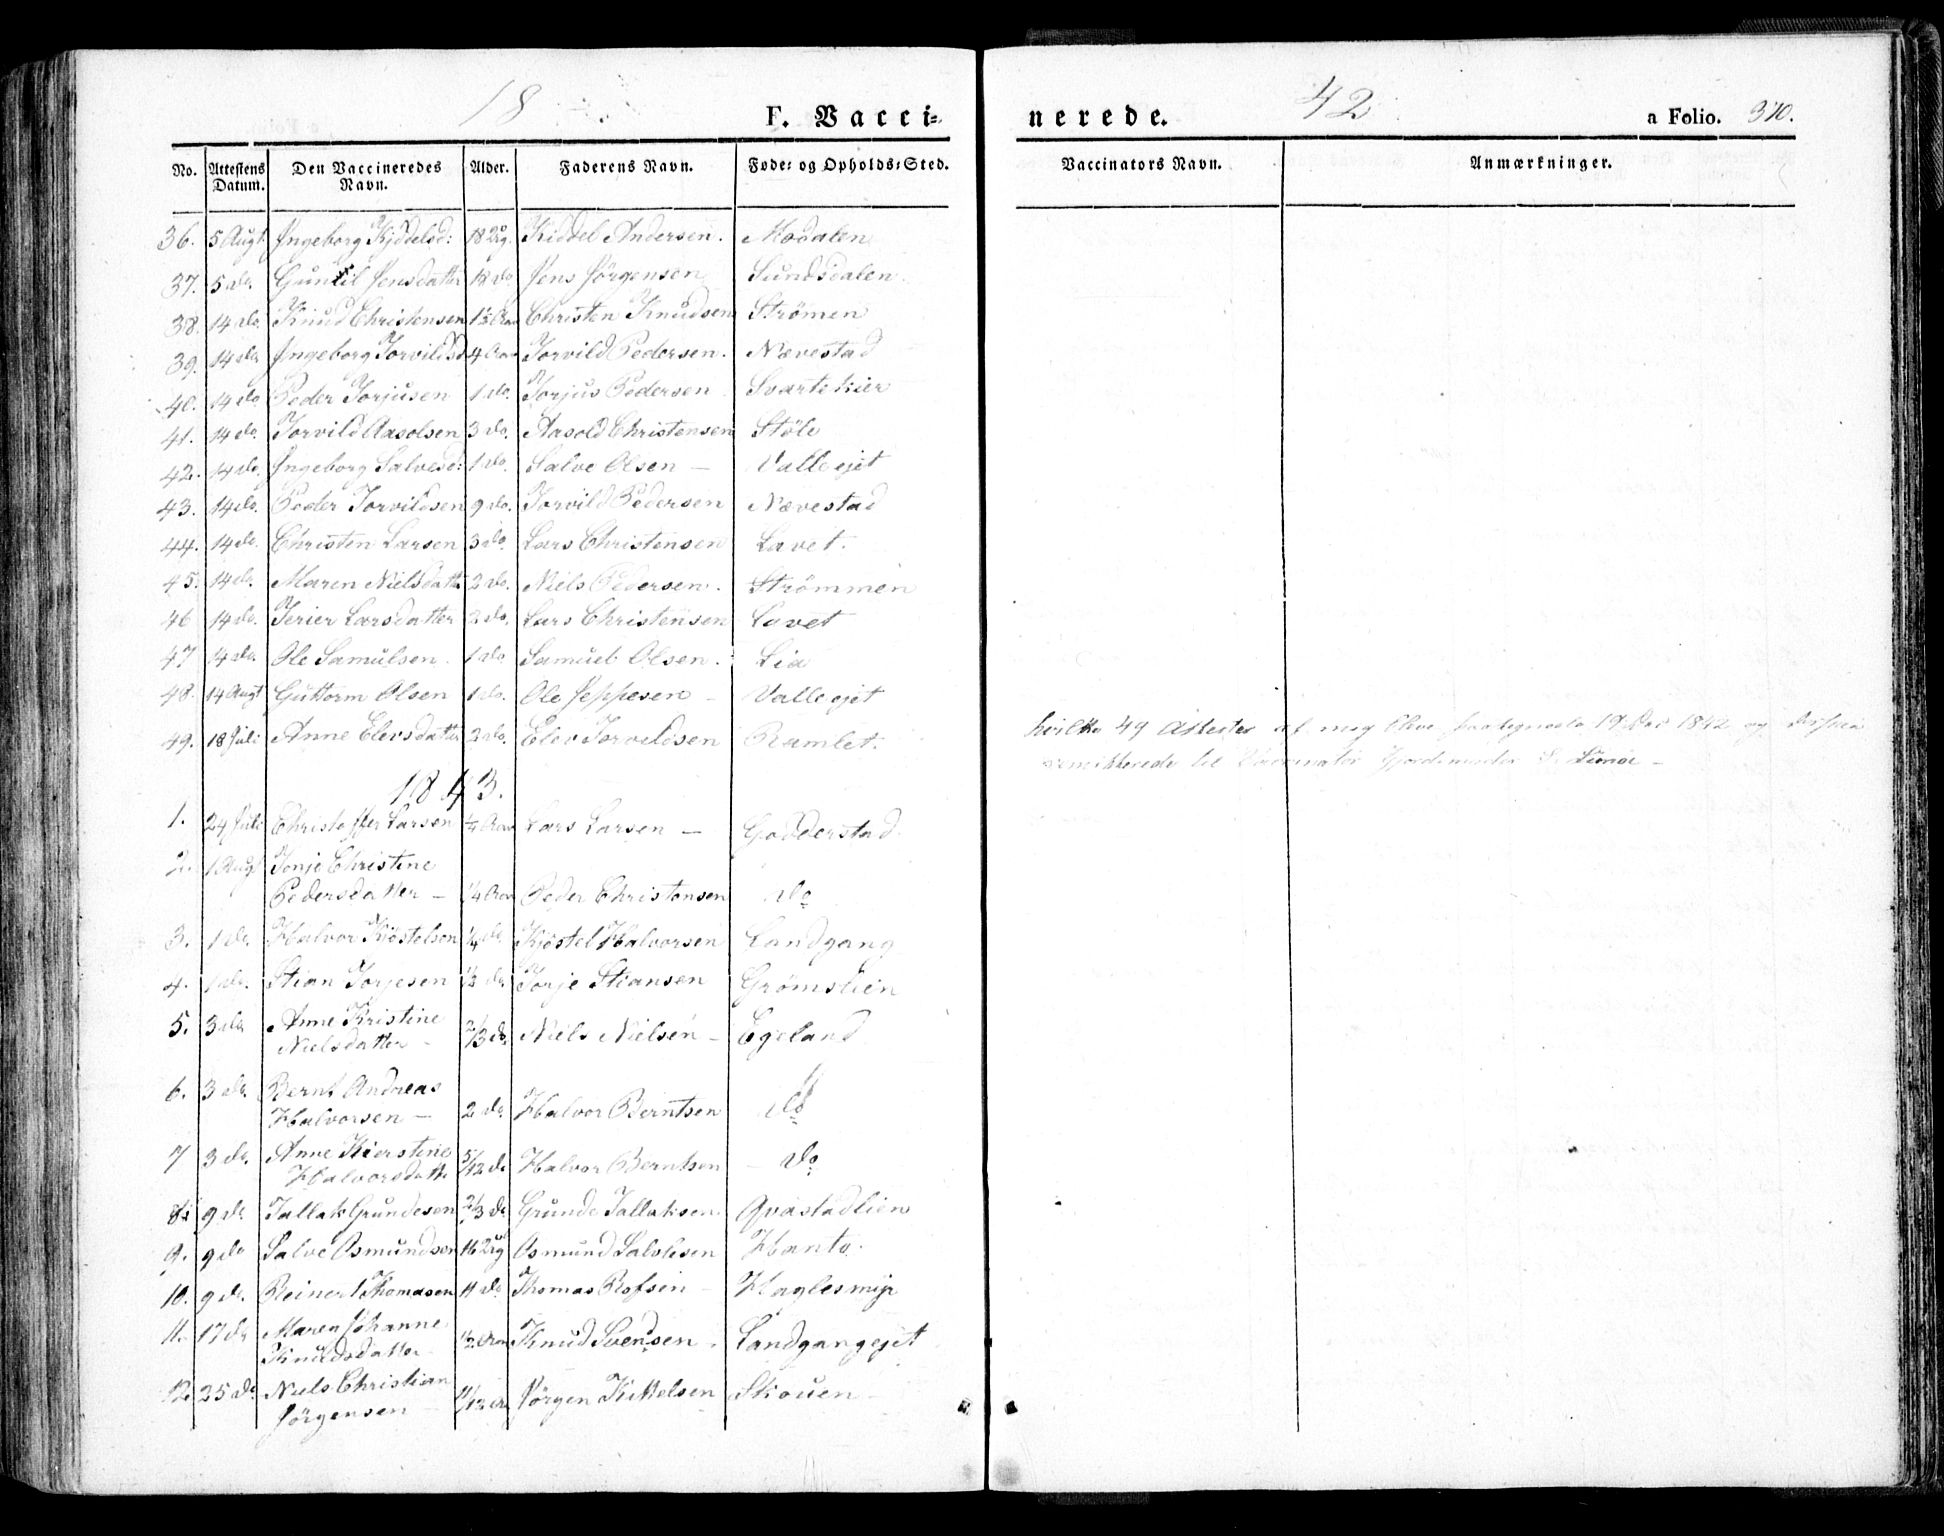 18 42
F. Vacci=nerede. a Folio. 370.
No. Attestens Datum. Den Vaccineredes Navn. Alder. Faderens Navn. Føde= og Opholds=Sted. Vaccinators Navn. Anmærkninger.
36. 5 Augt Ingeborg Kjddelsd: 18 Kiddel Andersen. Modalen
37. 5 do. Jensdatter do Jens Jörgensen Sundsdalen.
38. 14 do. Knud Christensen 1½ Aar Christen Knudsen Strömen
39. 14 do Ingeborg Torvildsd 4 Aar Torvild Pedersen. Nævestad
40. 14 do Peder Torjusen 1 do. Torjus Pedersen Svartekier
41. 14 do. Torvild Aasolsen 3 do. Aasold Christensen Støle
42. 14 do. Ingeborg Salvesd: 1 do. Salve Olsen — Valleejet
43. 14 do. Peder Torvildsen 9 do. Torvild Pedersen Nævestad
44. 14 do. Christen Larsen 3 do Lars Christensen Lavet.
45. 14 do. Maren Nielsdatt 2 do. Niels Pedersen. Strömmen
46 14 do. Terier Larsdatter 2 do. Lars Christensen Lavet
47 14 do. Ole Samulsen. 1 do Samuel Olsen. Lia
48. 14 Augt Guttorm Olsen 1 do. Ole Jeppesen — Valleejet
49. 18 Juli Anne Elevsdatter 2 do. Elev Torvildsen Ramlet.
hvilke 49 Attester af mig 19 1842 og
til Vaccinator
1843.
1. 24 Juli Christoffer Larsen Aar Lars Larsen — Godderstad.
2. 1 Augt Tonje Christine
Pedersdatter — ¼ Aar Peder Christensen do
3. 1 do. Halvor Kjöstelsen ¼ do Kjöstel Halvorsen Landgang
4. 1 do. Stian Torjesen ½ do. Torje Stiansen Grömslien
5. 3 do Anne Kristine
Nielsdatter — 2/3 do. Niels Nielsen — Egeland
6. 3 do. Bernt Andreas
Halvorsen — 2 do Halvor Berntsen do
7 3 do. Anne Kierstine
Halvorsdatt 5/12 do Halvor Berntsen — do
8. 9 do Tallak Grundesen 2/3 do Grunde Tallaksen Qvastadlien
9. 9 do Salve Osmundsen 16 Osmund Salvesen Hanto.
10. 9 do. Reinert Thomasen 11 do Thomas Rofsen — Haglesmyr
11. 17 do Maren Johanne
Knudsdatter ½ Aar Knud Svendsen. Landgangejet
12. 25 do Niels Christian
Jörgensen — 11/12 Aar Jörgen Kittelsen Skouen